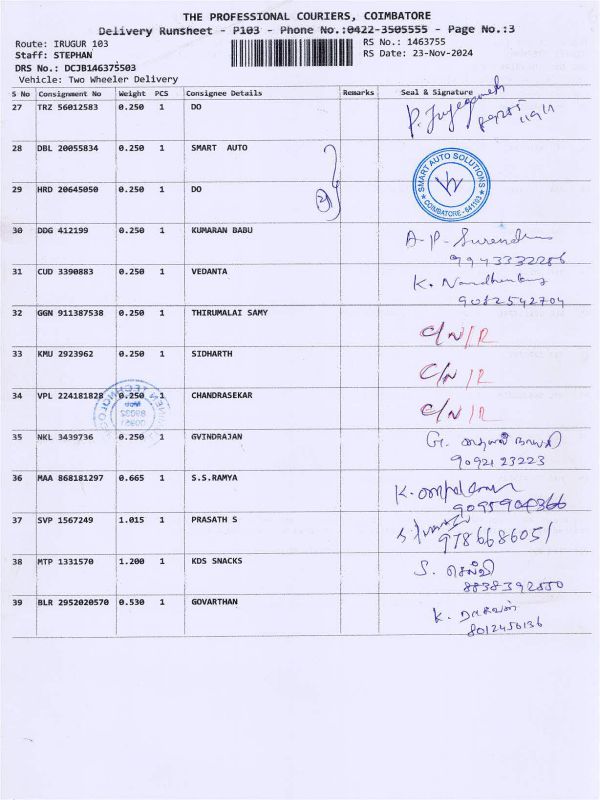 THE PROFESSIONAL COURIERS, COIMBATORE
Delivery Runsheet - P103 - Phone No.:0422-3505555 - Page No.:3
Route: IRUGUR 103
RS No.: 1463755
Staff: STEPHAN
RS Date: 23-Nov-2024
DRS No.: DCJB146375503
Vehicle: Two Wheeler Delivery
S No Consignment No Weight PCS Consignee Details Remarks Seal & Signature
27 TRZ 56012583 0.250 1 DO
28 DBL 20055834 0.250 1 SMART AUTO
SMART AUTO SOLUTIONS
COIMBATORE - 641103
29 HRD 20645050 0.250 1 DO
30 DDG 412199 0.250 1 KUMARAN BABU A.P. Surendran
9943332286
31 CUD 3390883 0.250 1 VEDANTA
9082542704
32 GGN 911387538 0.250 1 THIRUMALAI SAMY C/N/R
33 KMU 2923962 0.250 1 SIDHARTH C/N/R
34 VPL 224181828 0.250 1 CHANDRASEKAR C/N/R
35 NKL 3439736 0.250 1 GVINDRAJAN
9092123223
36 MAA 868181297 0.665 1 S.S.RAMYA
9095904366
37 SVP 1567249 1.015 1 PRASATH S
9786686051
38 MTP 1331570 1.200 1 KDS SNACKS S. செல்வி
8838392550
39 BLR 2952020570 0.530 1 GOVARTHAN K. ராகவன்
8012450136